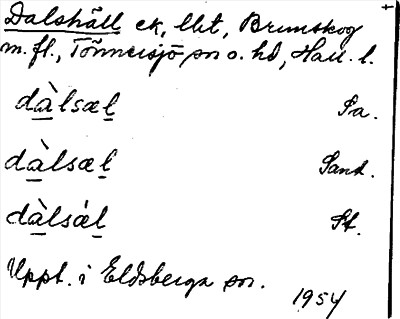 Dalshäll ek, lht, Brunskog
m. fl., Tönnersjö sn o. hd, Hall. l.
dàlsæl Sa.
dàlsæl Sand.
dàlsál St.
Uppt. i Eldsberga sn.
1954